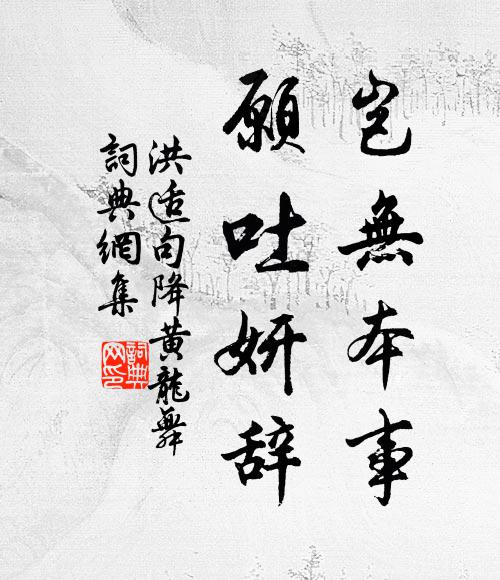 豈無本事
願吐妍辭
洪适句降黃龍舞
詞典網集
詞典網印